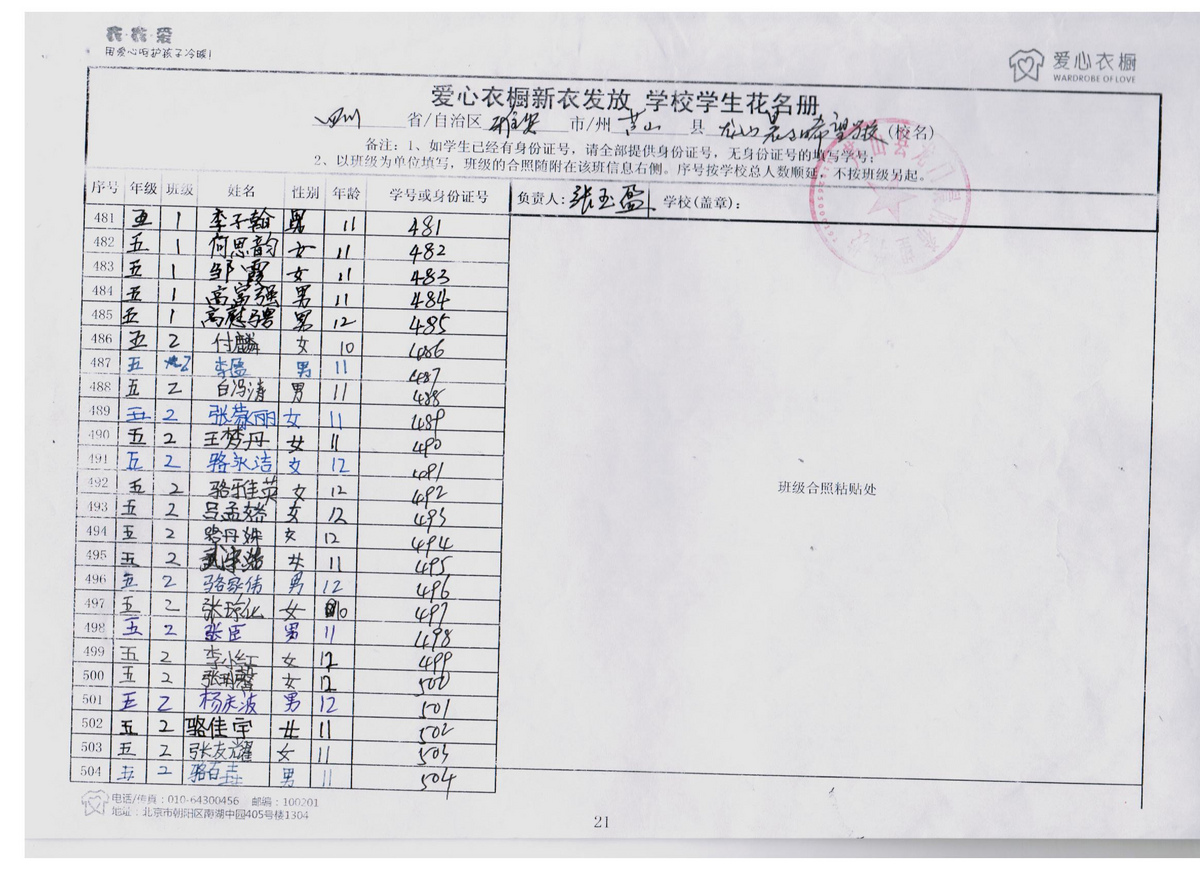 衣衣爱
用爱心呵护孩子冷暖!
爱心衣橱
WARDROBE OF LOVE
爱心衣橱新衣发放 学校学生花名册
四川 省/自治区 雅安 市/州 芦山 县 龙门 希望学校 (校名)
备注:1、如学生已经有身份证号,请全部提供身份证号,无身份证号的填写学号;
2、以班级为单位填写,班级的合照随附在该班信息右侧。序号按学校总人数顺延,不按班级另起。
序号 年级 班级 姓名 性别 年龄 学号或身份证号 负责人:张玉盈 学校(盖章):
481 五 1 李子翰 男 11 481
482 五 1 何思韵 女 11 482
483 五 1 邹霞 女 11 483
484 五 1 高富强 男 11 484
485 五 1 高 男 12 485
486 五 2 付麟 女 10 486
487 五 2 李 男 11 487
488 五 2 白冯涛 男 11 488
489 五 2 张 丽 女 11 489
490 五 2 王梦丹 女 11 490
491 五 2 骆永洁 女 12 491
492 五 2 骆雅英 女 12 492
493 五 2 吕孟 女 12 493
494 五 2 骆丹 女 12 494
495 五 2 女 11 495
496 五 2 骆家伟 男 12 496
497 五 2 张琼 女 10 497
498 五 2 张臣 男 11 498
499 五 2 李小红 女 12 499
500 五 2 张明馨 女 12 500
501 五 2 杨庆波 男 12 501
502 五 2 骆佳宇 女 11 502
503 五 2 张友耀 女 11 503
504 五 2 骆百 男 11 504
班级合照粘贴处
电话/传真:010-64300456 邮编:100201
地址:北京市朝阳区南湖中园405号楼1304
21